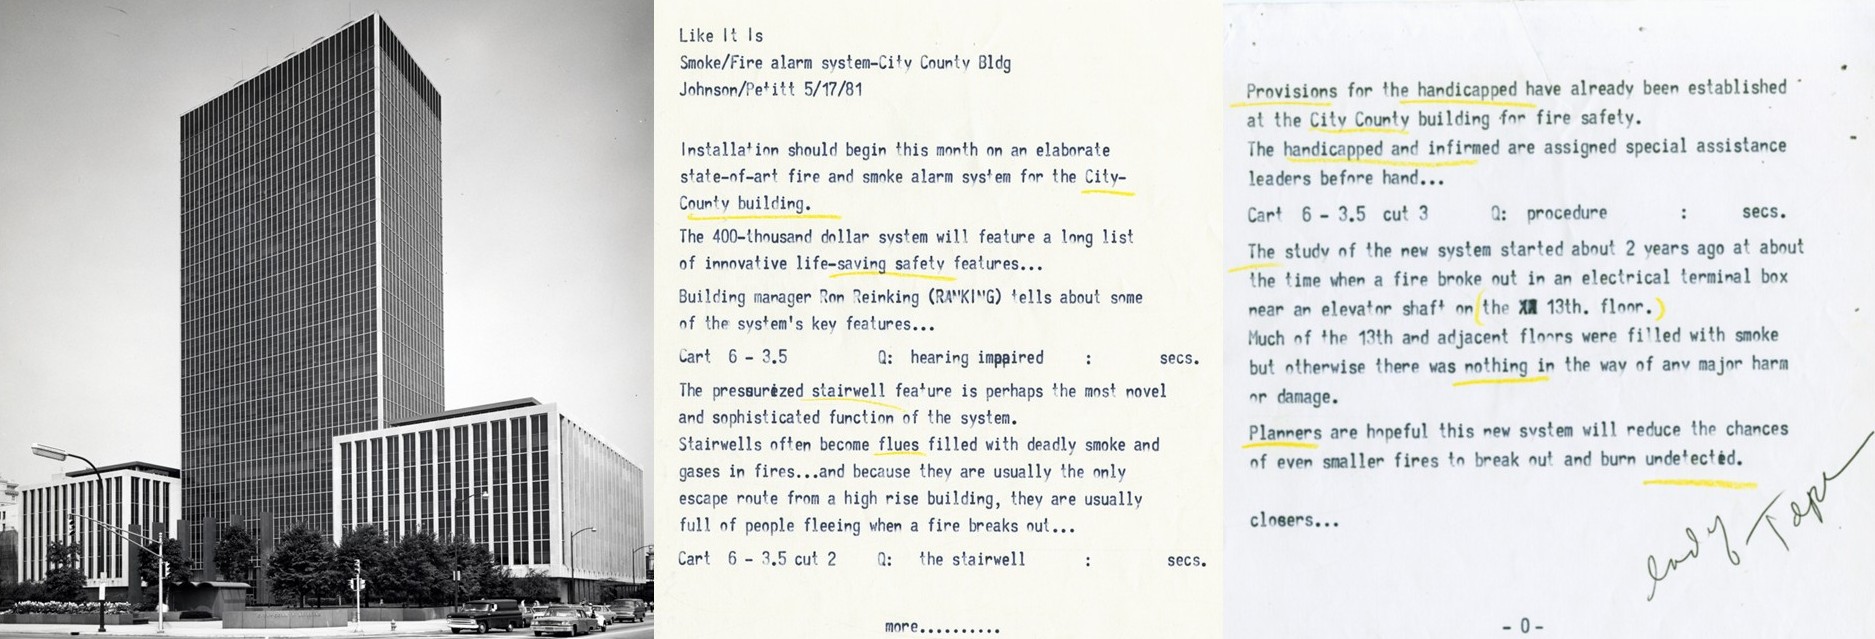 Like It Is
Smoke/Fire alarm system-City County Bldg
Johnson/Petitt 5/17/81
Installation should begin this month on an elaborate
state-of-art fire and smoke alarm system for the City-
County building.
The 400-thousand dollar system will feature a long list
of innovative life-saving safety features...
Building manager Ron Reinking (RANKING) tells about some
of the system's key features...
Cart 6 - 3.5 Q: hearing impaired : secs.
The pressurized stairwell feature is perhaps the most novel
and sophisticated function of the system.
Stairwells often become flues filled with deadly smoke and
gases in fires...and because they are usually the only
escape route from a high rise building, they are usually
full of people fleeing when a fire breaks out...
Cart 6 - 3.5 cut 2 Q: the stairwell : secs.
more..........
Provisions for the handicapped have already been established
at the City County building for fire safety.
The handicapped and infirmed are assigned special assistance
leaders before hand...
Cart 6 - 3.5 cut 3 Q: procedure : secs.
The study of the new system started about 2 years ago at about
the time when a fire broke out in an electrical terminal box
near an elevator shaft on (the 13th. floor.)
Much of the 13th and adjacent floors were filled with smoke
but otherwise there was nothing in the way of any major harm
or damage.
Planners are hopeful this new system will reduce the chances
of even smaller fires to break out and burn undetected.
closers...
Tape
- 0 -